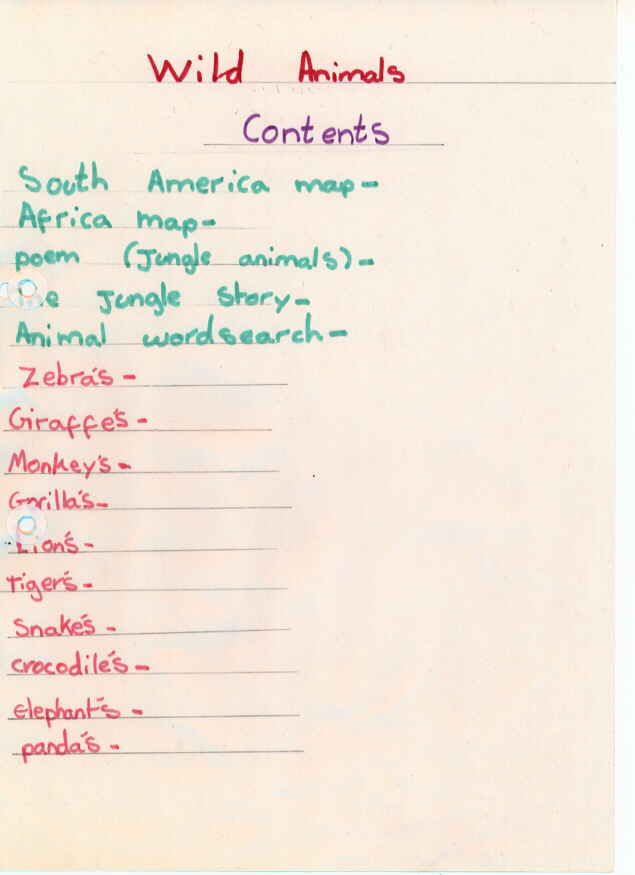 Wild Animals
Contents
South America map-
Africa map-
poem (Jungle animals)-
Jungle story-
Animal wordsearch-
Zebra's -
Giraffe's -
Monkey's -
Gorilla's-
Lion's -
Tiger's -
Snake's -
crocodile's -
Elephant's -
panda's -